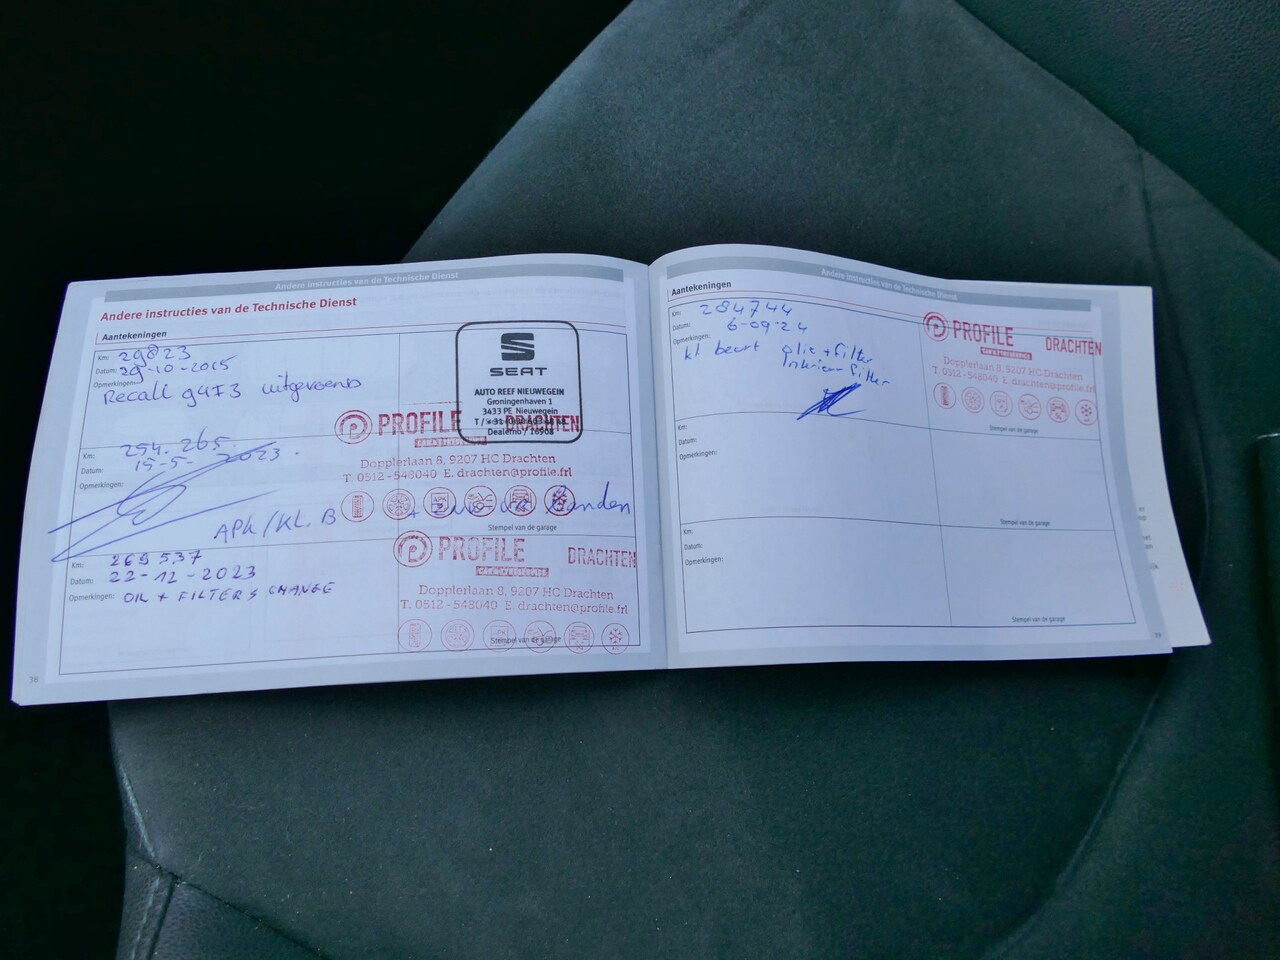 Andere instructies van de Technische Dienst
Andere instructies van de Technische Dienst
Aantekeningen
Km: 29823
Datum: 29-10-2015
Opmerkingen:
Recall 94F3 uitgevoerd
SEAT
AUTO REEF NIEUWEGEIN
Groningenhaven 1
3433 PE Nieuwegein
Dealerno / 16908
254.265
Datum: 15-5-2023.
Opmerkingen:
APK/KL. B
+ banden
PROFILE DRACHTEN
Dopplerlaan 8, 9207 HC Drachten
T. 0512-548040 E. drachten@profile.frl
Stempel van de garage
Km: 269537
Datum: 22-12-2023
Opmerkingen: OIL + FILTERS CHANGE
PROFILE DRACHTEN
Dopplerlaan 8, 9207 HC Drachten
T. 0512-548040 E. drachten@profile.frl
Stempel van de garage
38
Andere instructies van de Technische Dienst
Aantekeningen
Km: 284744
Datum: 6-09-24
Opmerkingen:
kl beurt olie + filter
Interieur filter
PROFILE DRACHTEN
Dopplerlaan 8, 9207 HC Drachten
T. 0512-548040 E. drachten@profile.frl
Stempel van de garage
Km:
Datum:
Opmerkingen:
Stempel van de garage
Km:
Datum:
Opmerkingen:
Stempel van de garage
39